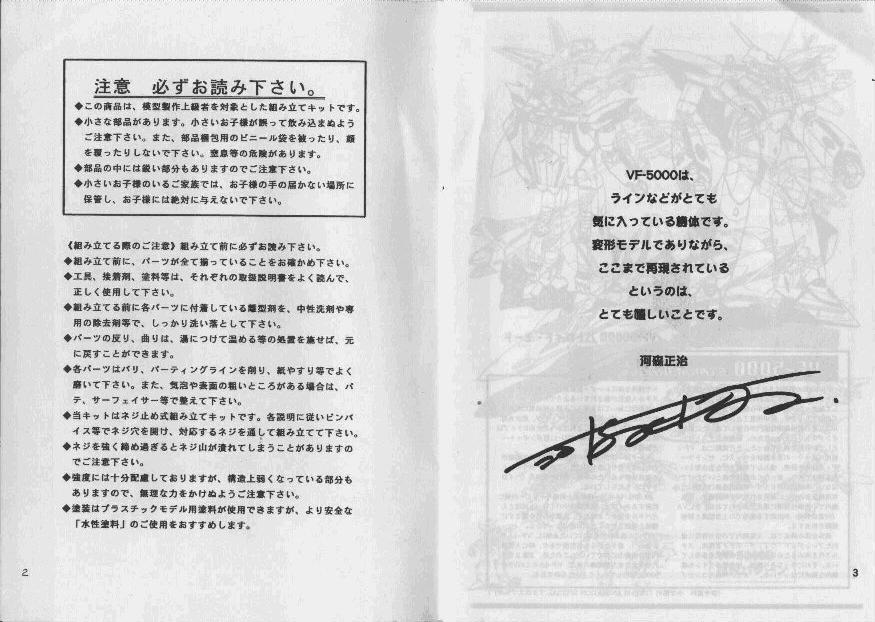 注意　必ずお読み下さい。
◆この商品は、模型製作上級者を対象とした組み立てキットです。
◆小さな部品があります。小さいお子様が誤って飲み込まぬよう
ご注意下さい。また、部品梱包用のビニール袋を被ったり、顔
を覆ったりしないで下さい。窒息等の危険があります。
◆部品の中には鋭い部分もありますのでご注意下さい。
◆小さいお子様のいるご家族では、お子様の手の届かない場所に
保管し、お子様には絶対に与えないで下さい。
《組み立てる際のご注意》組み立て前に必ずお読み下さい。
◆組み立て前に、パーツが全て揃っていることをお確かめ下さい。
◆工具、接着剤、塗料等は、それぞれの取扱説明書をよく読んで、
正しく使用して下さい。
◆組み立てる前に各パーツに付着している離型剤を、中性洗剤や専
用の除去剤等で、しっかり洗い落として下さい。
◆パーツの反り、曲りは、湯につけて温める等の処置を施せば、元
に戻すことができます。
◆各パーツはバリ、パーティングラインを削り、紙やすり等でよく
磨いて下さい。また、気泡や表面の粗いところがある場合は、パ
テ、サーフェイサー等で整えて下さい。
◆当キットはネジ止め式組み立てキットです。各説明に従いピンバ
イス等でネジ穴を開け、対応するネジを通して組み立てて下さい。
◆ネジを強く締め過ぎるとネジ山が潰れてしまうことがありますの
でご注意下さい。
◆強度には十分配慮しておりますが、構造上弱くなっている部分も
ありますので、無理な力をかけぬようご注意下さい。
◆塗装はプラスチックモデル用塗料が使用できますが、より安全な
「水性塗料」のご使用をおすすめします。
2
VF-5000は、
ラインなどがとても
気に入っている機体です。
変形モデルでありながら、
ここまで再現されている
というのは、
とても嬉しいことです。
河森正治
3